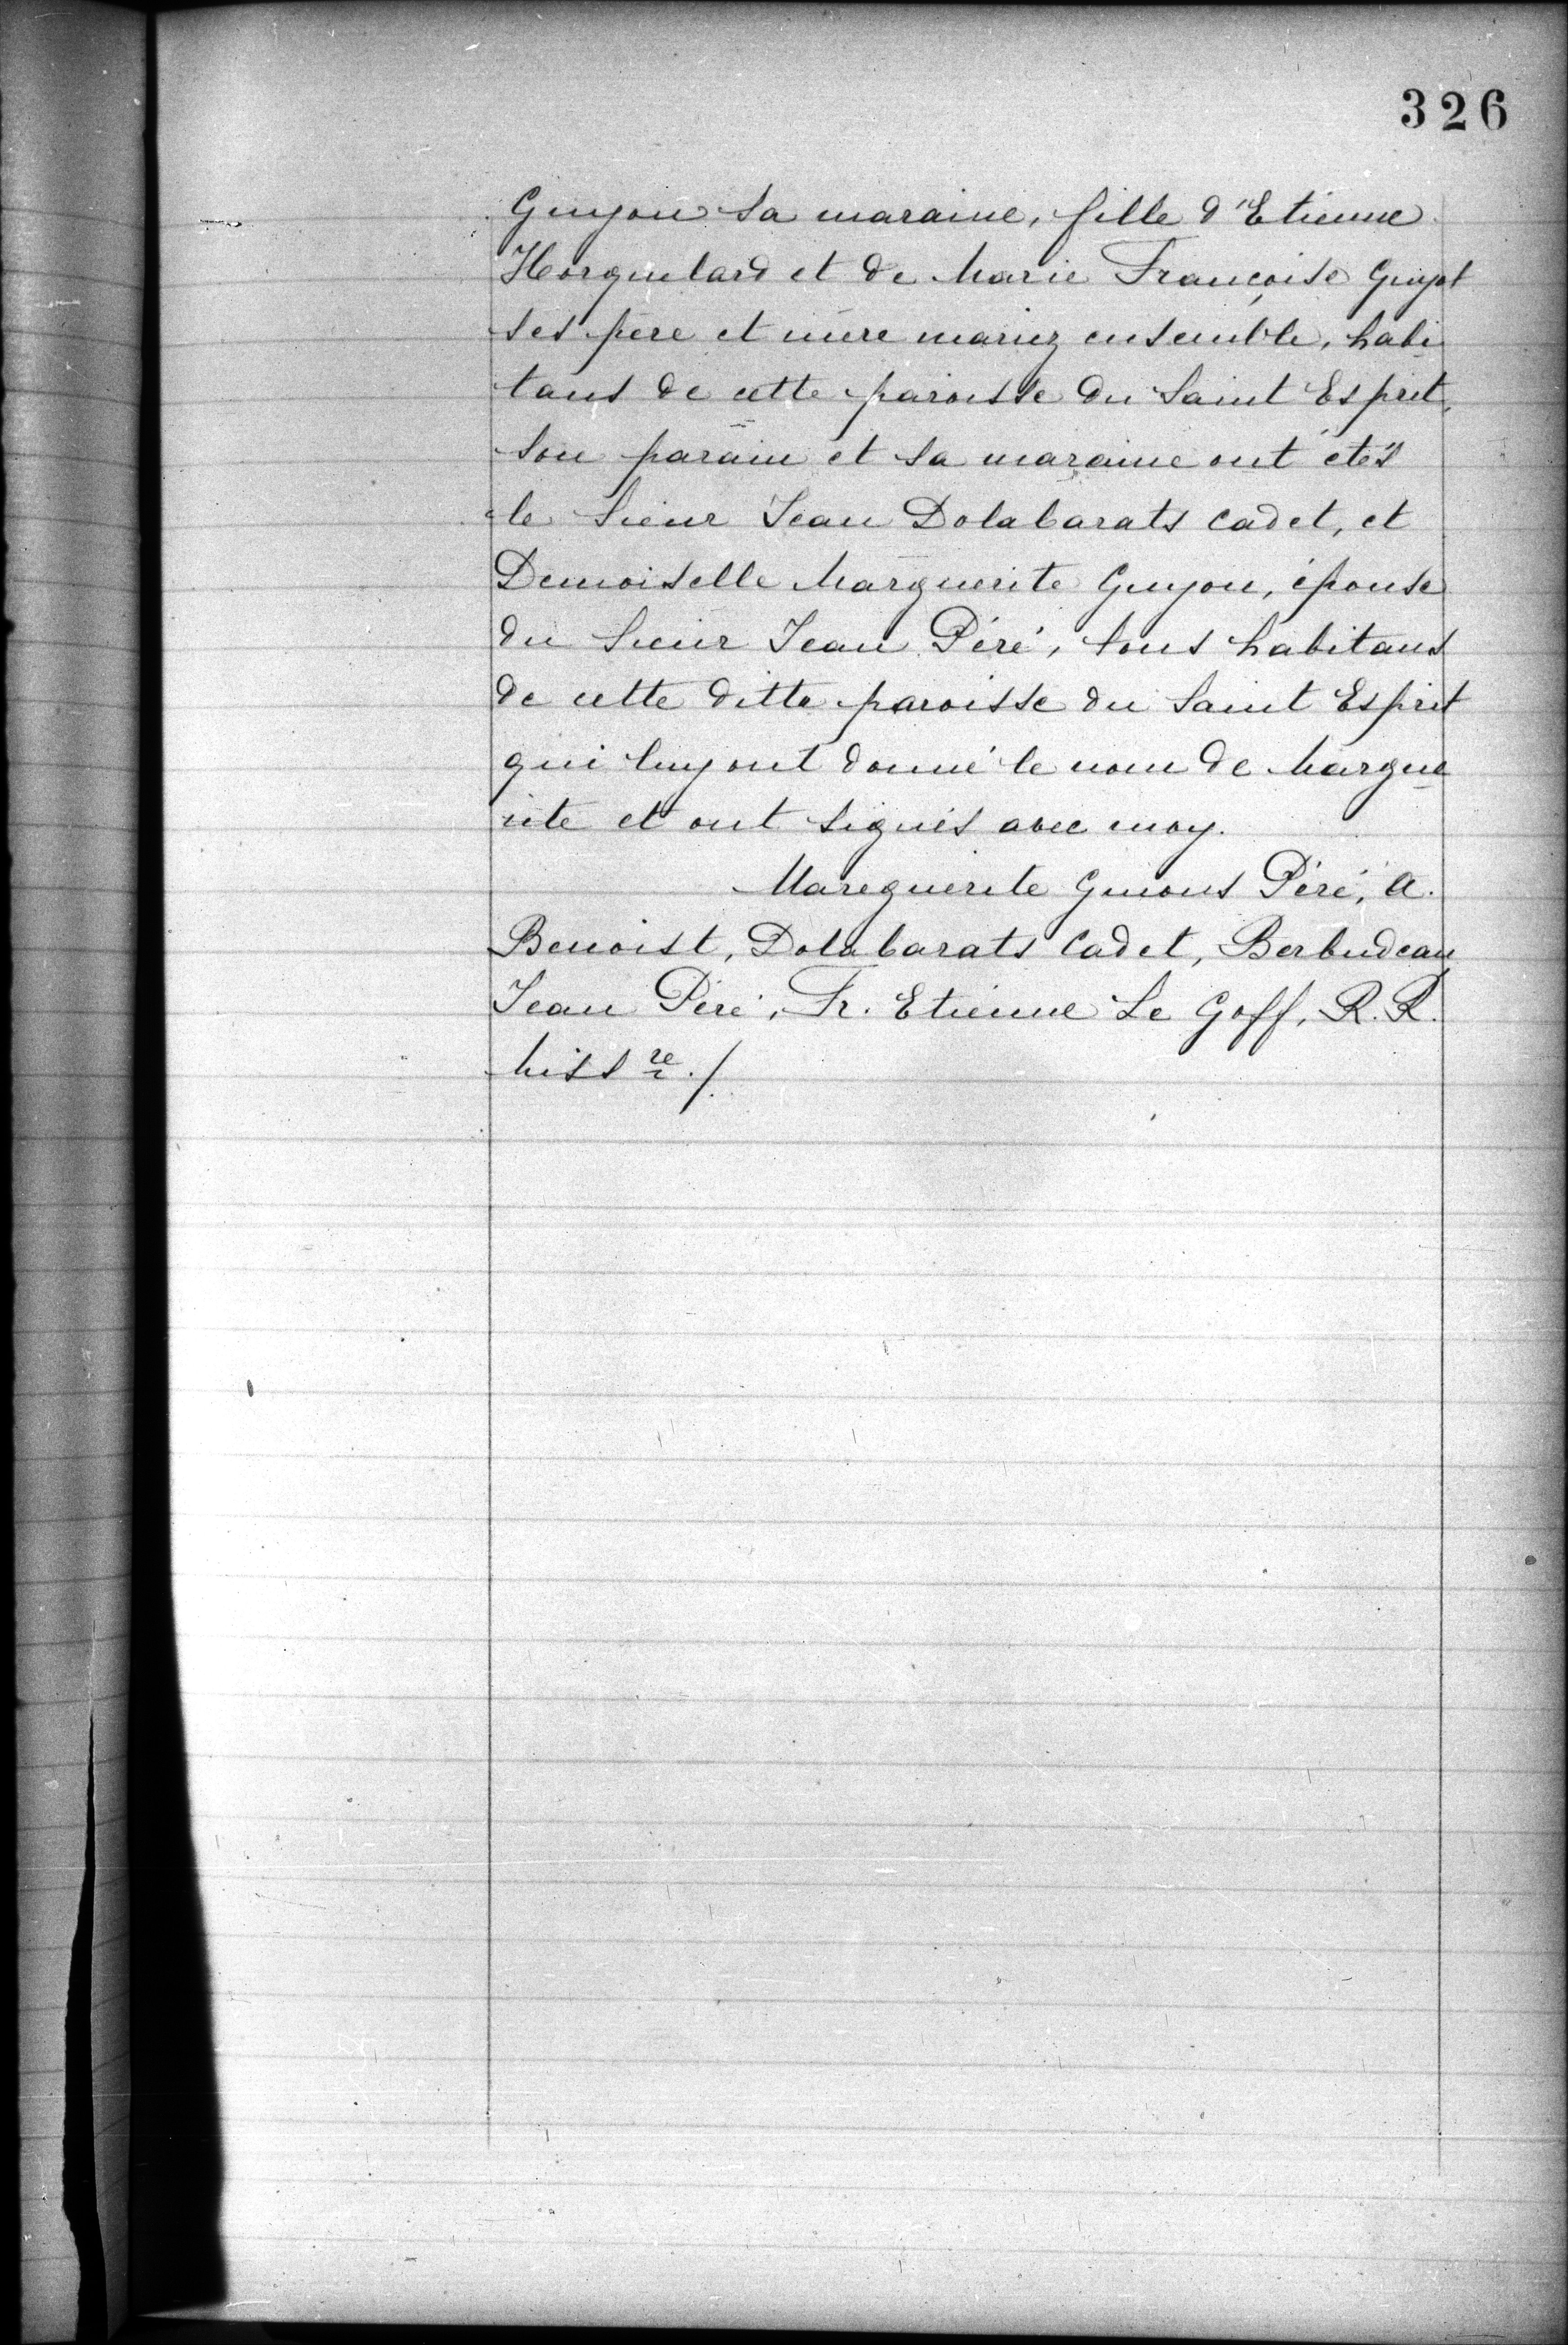 326
Guyon sa maraine, fille d'Etienne
Horquelard et de Marie Françoise Guyot
ses père et mère mariez ensemble, habi
tans de cette paroisse du Saint Esprit,
son parain et sa maraine ont étés
le Sieur Jean Dolabarats cadet, et
Demoiselle Marguerite Guyon, épouse
du Sieur Jean Péré, tous habitans
de cette ditte paroisse du Saint Esprit
qui luy ont donné le nom de Margue
rite et ont signés avec moy.
Mareguerite Guions Péré, A.
Benoist, Dolabarats Cadet, Berbudeau
Jean Péré, Fr. Etienne Le Goff, R. R.
Miss re ./.